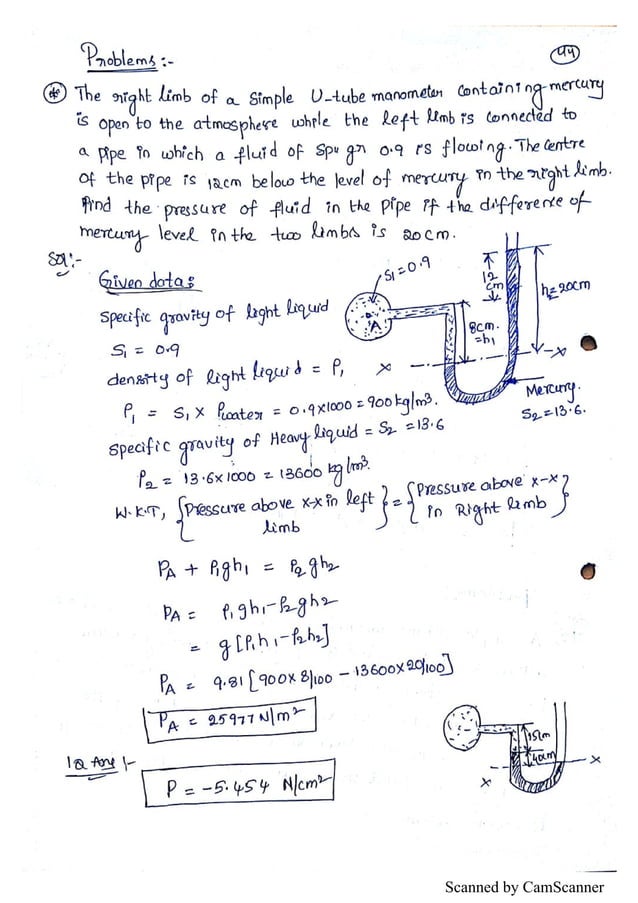 Problems :-
44
The right limb of a simple U-tube manometer containing mercury
is open to the atmosphere while the left limb is connected to
a pipe in which a fluid of spu gr 0.9 is flowing. The centre
of the pipe is 12cm below the level of mercury in the right limb.
Find the pressure of fluid in the pipe if the difference of
mercury level in the two limbs is 20cm.
Sol:-
Given data:
S1 = 0.9
A
12
cm
h2=20cm
8cm.
=h1
x
-x
Mercury.
S2=13.6.
specific gravity of light liquid
S1 = 0.9
density of light liquid = ρ1
ρ1 = S1 x ρwater = 0.9x1000 = 900 kg/m3.
specific gravity of Heavy liquid = S2 = 13.6
ρ2 = 13.6x1000 = 13600 kg/m3.
W.K.T, {Pressure above x-x in left limb} = {Pressure above x-x in Right limb}
PA + ρ1gh1 = ρ2gh2
PA = ρ1gh1-ρ2gh2
= g[ρ1h1-ρ2h2]
PA = 9.81[900x8/100 - 13600x20/100]
PA = 25977 N/m2
15cm
40cm
x
-x
12 Ans :-
P = -5.454 N/cm2
Scanned by CamScanner